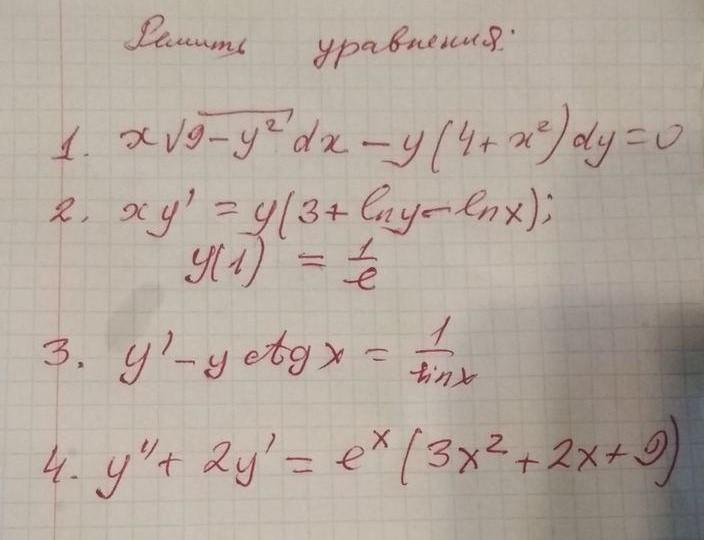 Решить уравнения:
1. x√9-y² dx - y(4+x²)dy=0
2. xy' = y(3+lny-lnx);
y(1) = 1/e
3. y' - y ctg x = 1/sinx
4. y'' + 2y' = eˣ(3x²+2x+9)